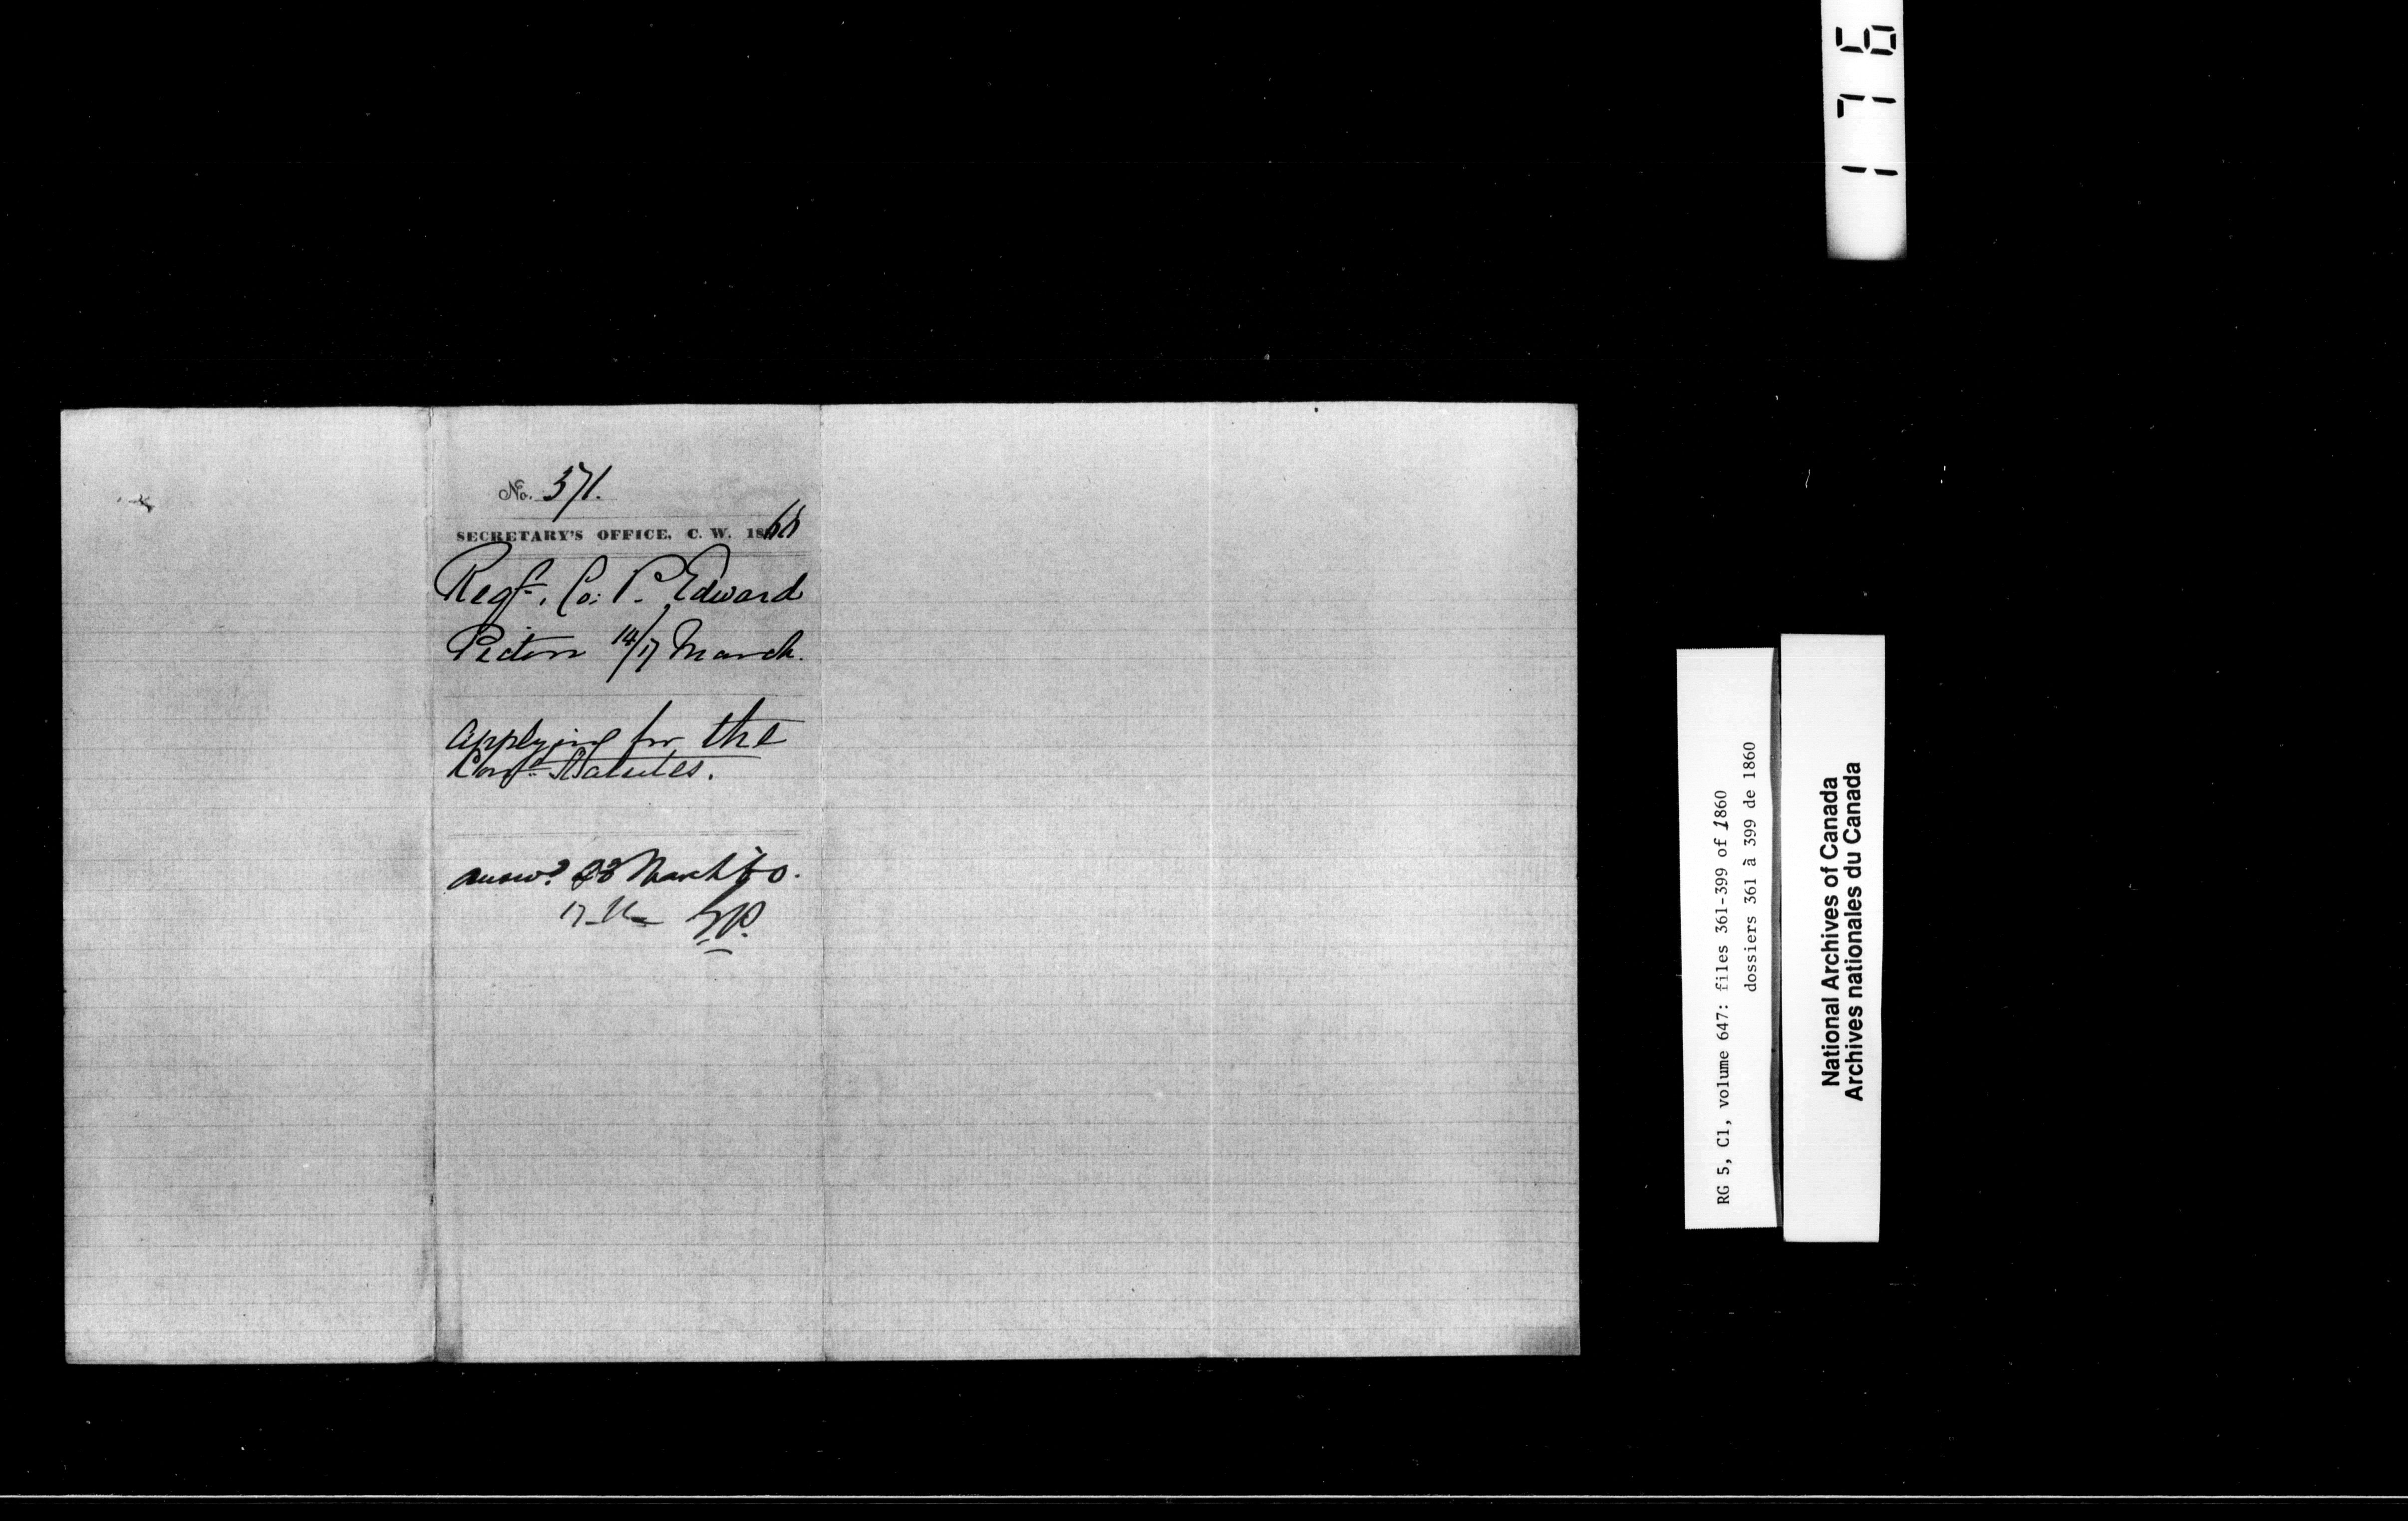 No. 371.
SECRETARY'S OFFICE, C. W. 1860
Regr. Co: P. Edward
Picton 14/17 March.
Applying for the
Consd. Statutes.
Answd. 23 March 60.
RG 5, C1, volume 647: files 361-399 of 1860
dossiers 361 à 399 de 1860
National Archives of Canada
Archives nationales du Canada
176